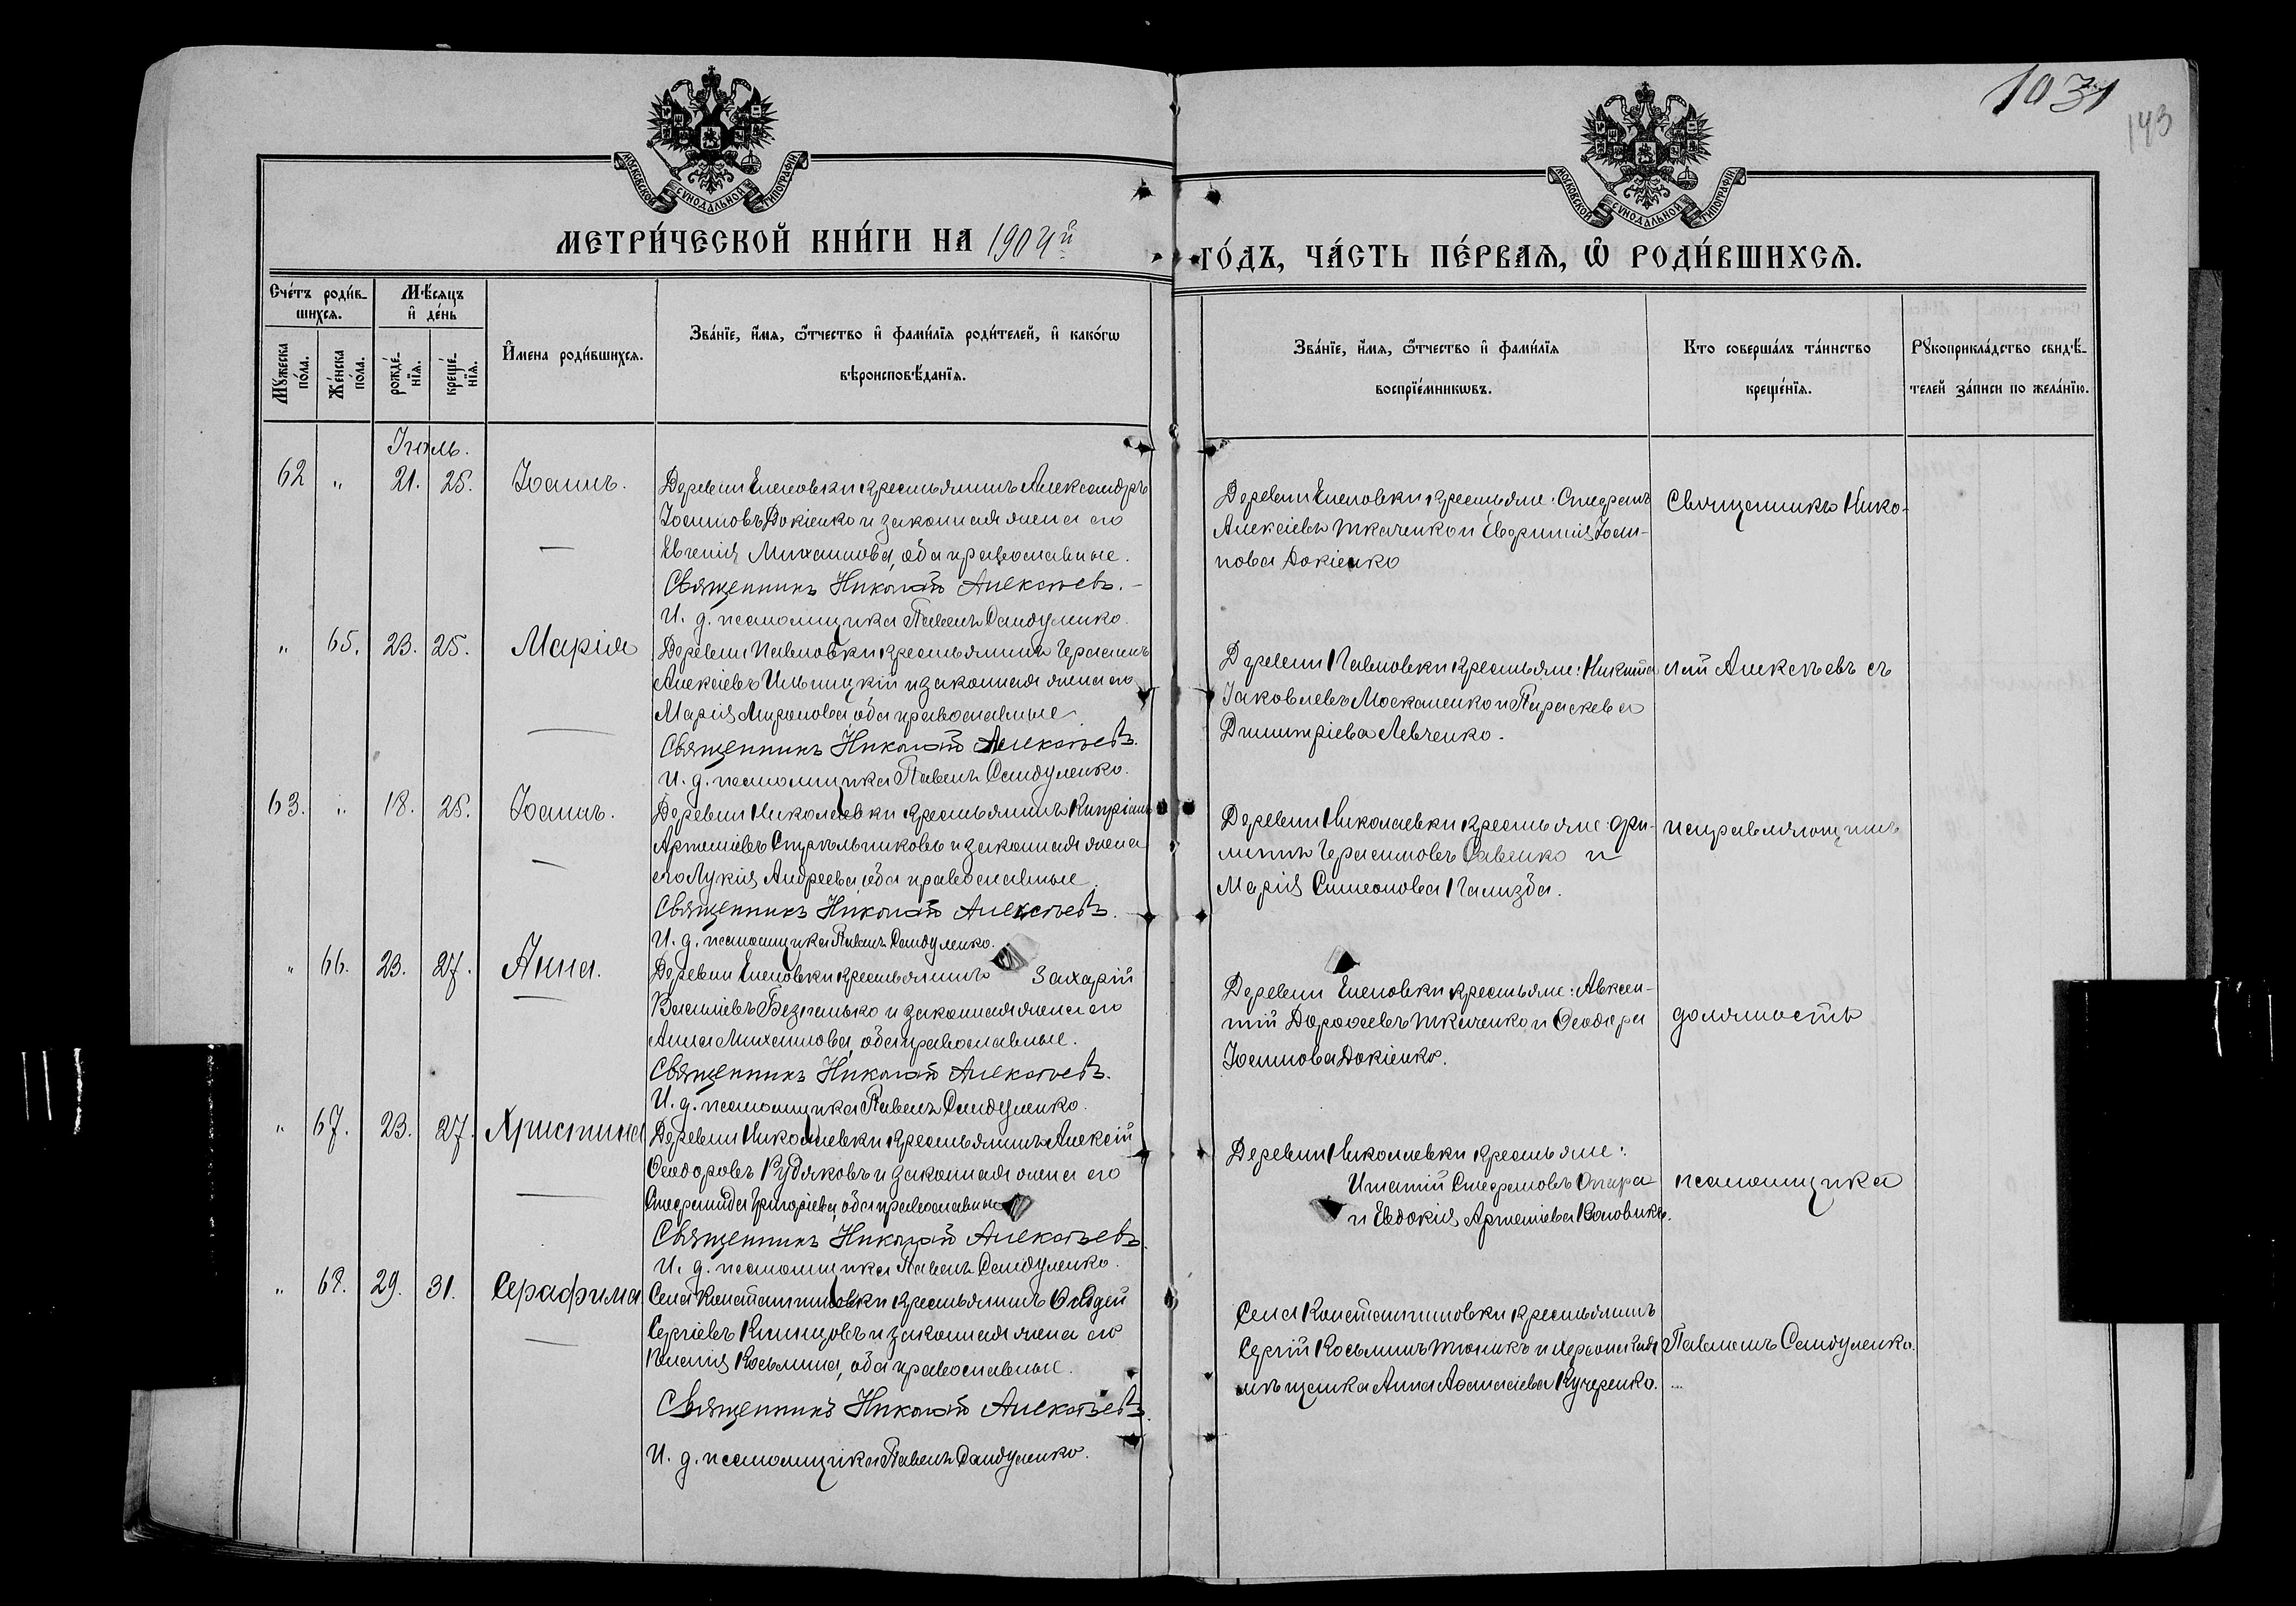 1031
143
МОСКОВСКОЙ СѴНОДАЛЬНОЙ ТИПОГРАФІИ
МОСКОВСКОЙ СѴНОДАЛЬНОЙ ТИПОГРАФІИ
МЕТРИ́ЧЕСКОЙ КНИ́ГИ НА 1904й
ГО́ДЪ, ЧА́СТЬ ПЕ́РВАѦ, Ѽ РОДИ́ВШИХСѦ.
Сче́тъ роди́в-
шихсѧ.
Мꙋжеска по́ла.
Же́нска по́ла.
Мѣ́сѧцъ
и҆ де́нь
рожде́-
нїѧ.
креще́-
нїѧ.
И҆́мена роди́вшихсѧ.
Зва́нїе, и҆́мѧ, ѻ҆́тчество и҆ фами́лїѧ роди́телей, и҆ како́гѡ
вѣроисповѣ́данїѧ.
Зва́нїе, и҆́мѧ, ѻ҆́тчество и҆ фами́лїѧ
воспрїе́мникѡвъ.
Кто соверша́лъ та́инство
креще́нїѧ.
Рꙋкоприкла́дство свидѣ́-
телей за́писи по жела́нїю.
Іюль.
62 " 21. 25. Іоаннъ.
Деревни Еленовки крестьянинъ Александръ
Іоанновъ Докіенко и законная жена его
Евгенія Михаилова, оба православные.
Священникъ Николай Алексѣевъ.
И. д. псаломщика Павелъ Сандуленко.
Деревни Еленовки крестьяне: Стефанъ
Алексіевъ Ткаченко и Евфимія Іоан-
нова Докіенко
Священникъ Нико-
" 65. 23. 25. Марія
Деревни Павловки крестьянинъ Герасимъ
Алексіевъ Ильницкій и законная жена его
Марія Миронова, оба православные
Священникъ Николай Алексѣевъ.
И. д. псаломщика Павелъ Сандуленко.
Деревни Павловки крестьяне: Никита
Іаковлевъ Москаленко и Параскева
Димитріева Левченко.
лай Алексѣевъ съ
63. " 18. 25. Іоаннъ.
Деревни Николаевки крестьянинъ Кипріанъ
Артеміевъ Стрѣльниковъ и законная жена
его Лукія Андреева, оба православные.
Священникъ Николай Алексѣевъ.
И. д. псаломщика Павелъ Сандуленко.
Деревни Николаевки крестьяне: Фи-
липпъ Герасимовъ Савенко и
Марія Симеонова
исправляющимъ
" 66. 23. 27. Анна.
Деревни Еленовки крестьянинъ Захарій
Василіевъ Безпалько и законная жена его
Анна Михаилова, оба православные.
Священникъ Николай Алексѣевъ.
И. д. псаломщика Павелъ Сандуленко.
Деревни Еленовки крестьяне: Авксен-
тій Дороѳеевъ Ткаченко и Ѳеодора
Іоаннова Докіенко.
должность
" 67. 23. 27. Христина
Деревни Николаевки крестьянинъ Алексій
Ѳеодоровъ Рудяковъ и законная жена его
Стефанида Григоріева, оба православные
Священникъ Николай Алексѣевъ.
И. д. псаломщика Павелъ Сандуленко.
Деревни Николаевки крестьяне:
Игнатій Стефановъ Опара
и Евдокія Артеміева
псаломщика
" 68. 29. 31. Серафима
Села Константиновки крестьянинъ
Сергіевъ Климцовъ и законная жена его
Космина, оба православные.
Священникъ Николай Алексѣевъ.
И. д. псаломщика Павелъ Сандуленко.
Села Константиновки крестьянинъ
Сергій Косьминъ Тюникъ и Херсонская
мѣщанка Анна Аѳанасіева Кучеренко.
Павломъ Сандуленко.